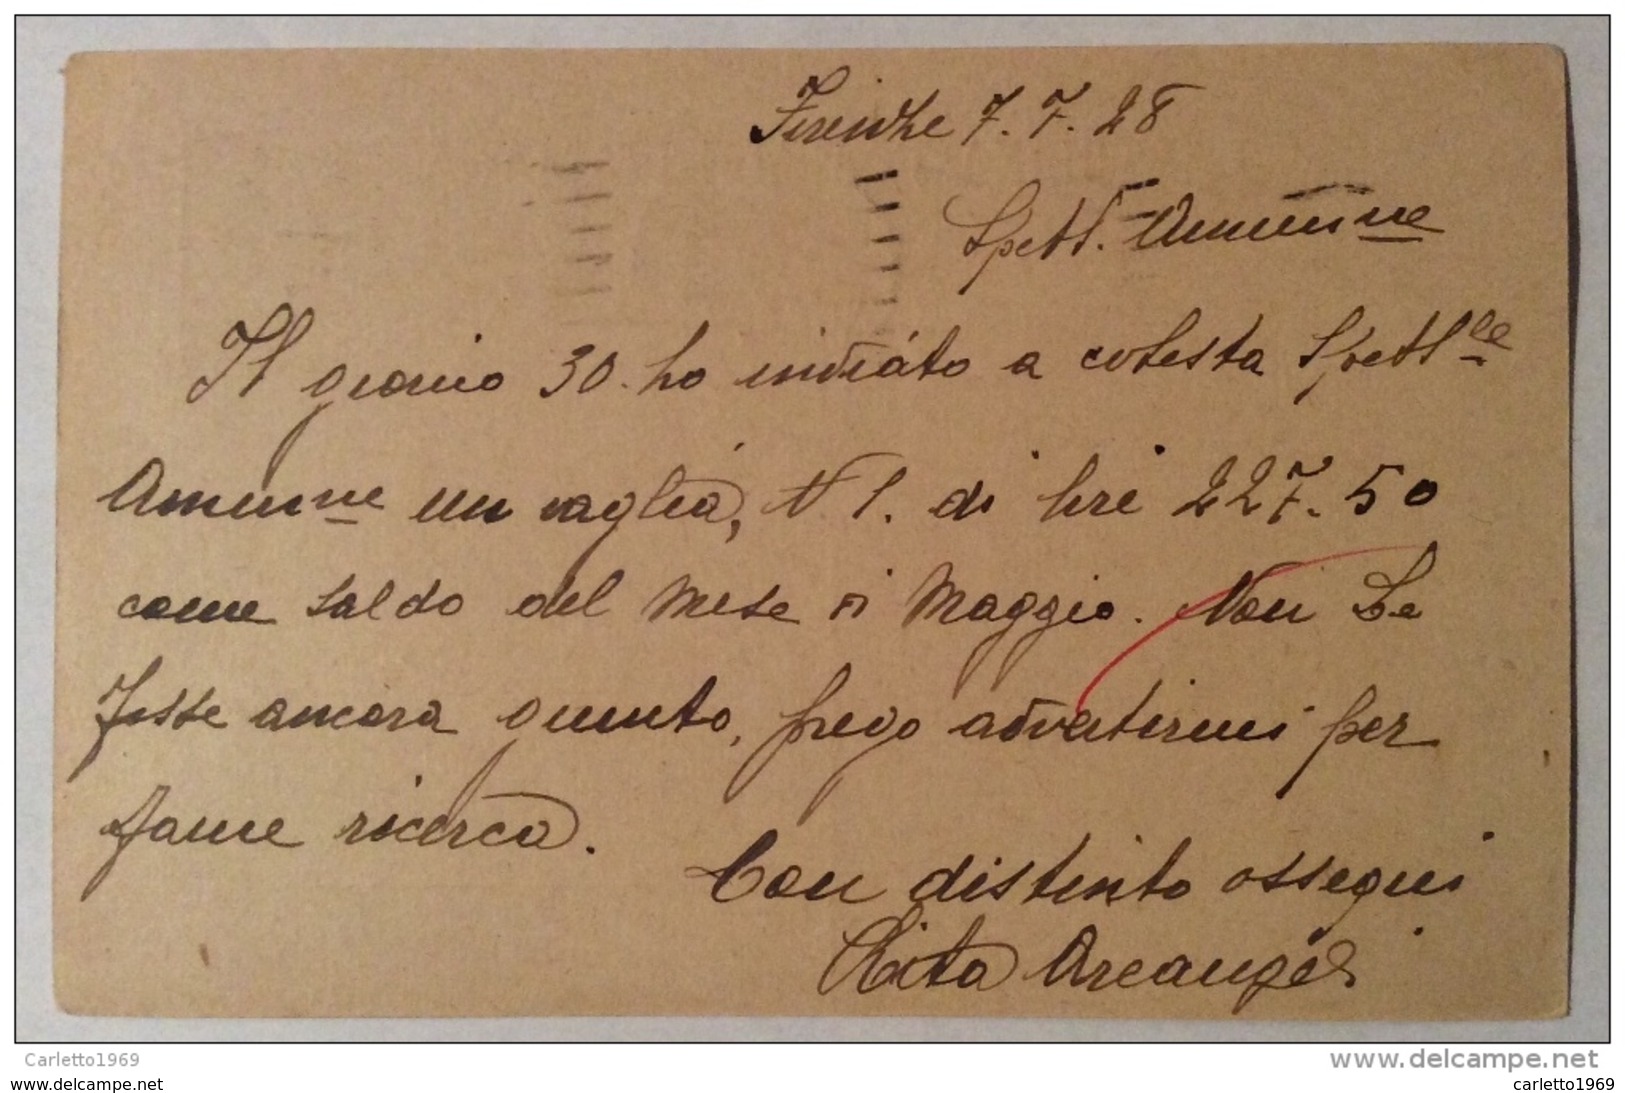 Firenze 7.7.28
Spett. Ammin.ne
Il giorno 30. ho inviato a cotesta Spett.le
Ammin.ne un vaglia, N. 1. di lire 227.50
come saldo del mese di Maggio. Non Le
fosse ancora giunto, prego avvertirmi per
farne ricerca.
Con distinto ossequi
Rita Arcangeli
Carletto1969
www.delcampe.net
www.delcampe.net
carletto1969